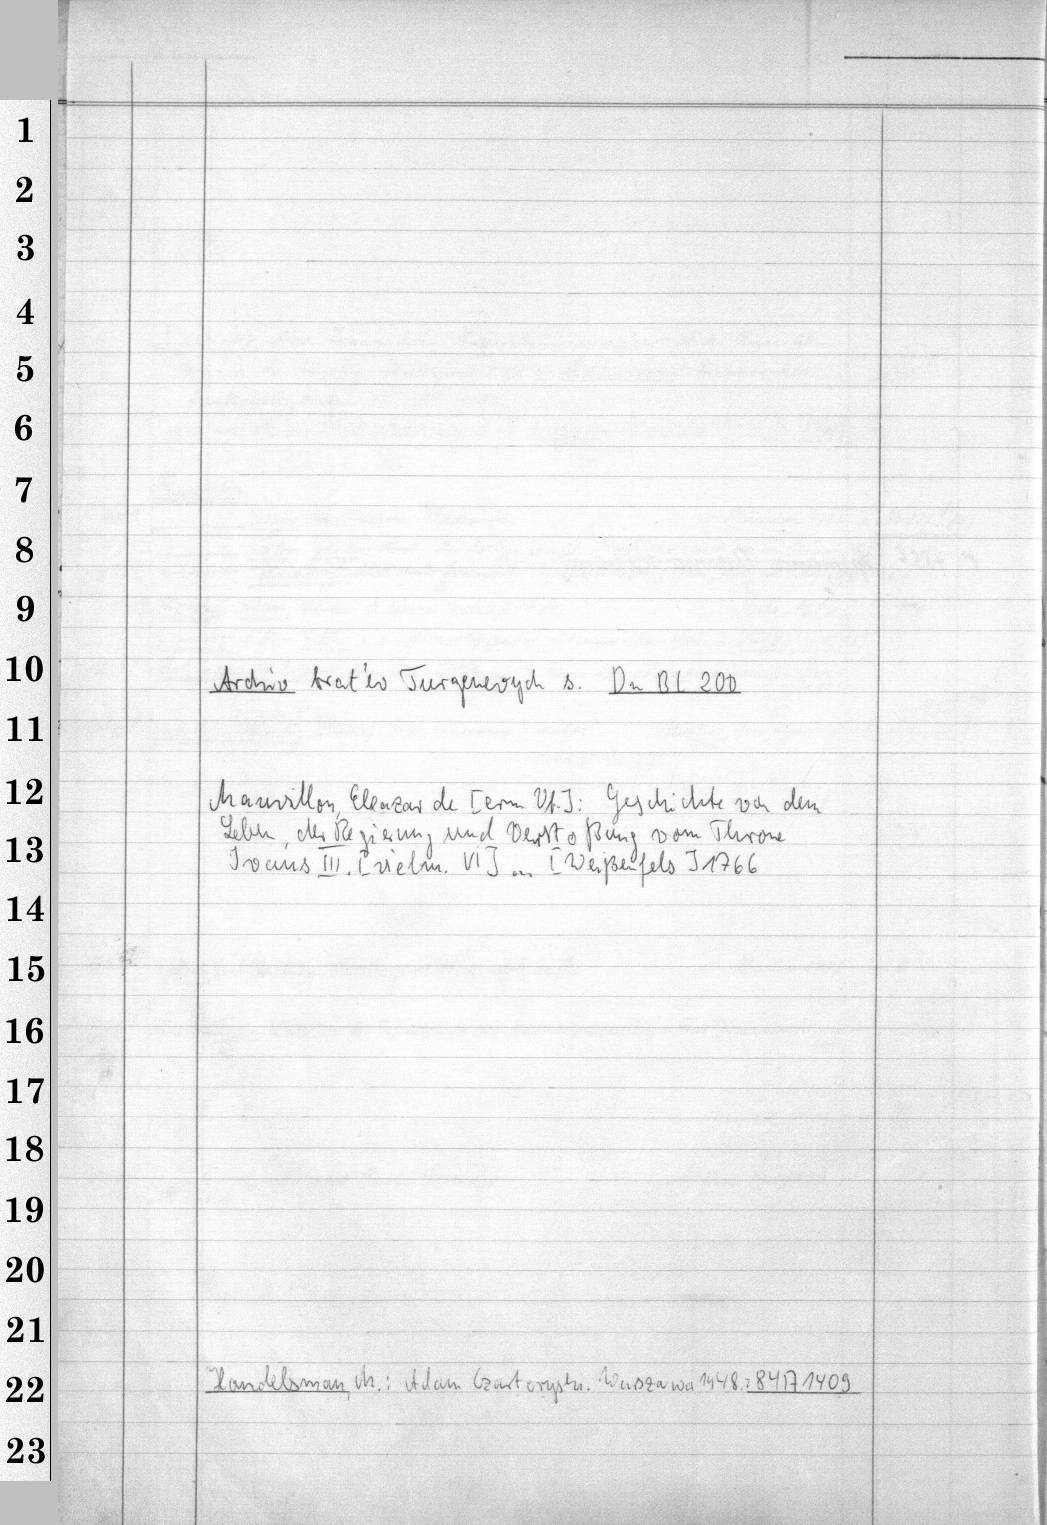 1
2
3
4
5
6
7
8
9
10
Archiv brat'ev Turgenevych s. Dn BL 200
11
12
Mauvillon, Eleazar de [erm. Vf.]: Geschichte von dem
Leben, der Regierung und Verstoßung vom Throne
13
Ivans III. [vielm. VI] ... [Weißenfels] 1766
14
15
16
17
18
19
20
21
22
Handelsman, M.: Adam Czartoryski. Warszawa 1948.: 84 1409
23